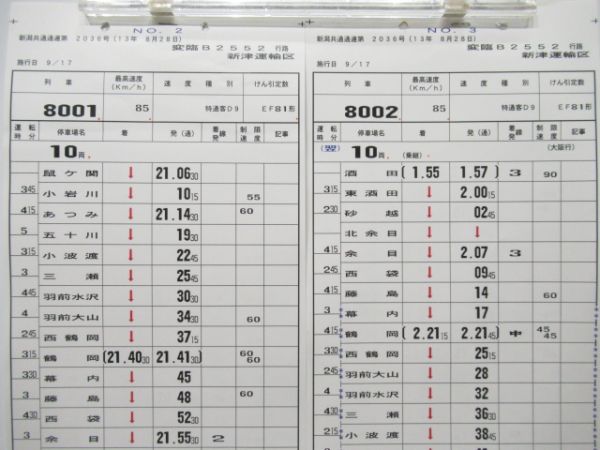 NO. 2
新潟共通過運第 2036号(13年 8月28日)
変臨B2552 行路
新津運輸区
施行日 9/17
列 車 最高速度 (Km/h) 速 度 種 別 けん引定数
8001 85 特通客D9 EF81形
運転時分 停車場名 着 発(通) 着発線 制限速度 記事
10両
鼠ヶ関 ↓ 21.06 30
345 小岩川 ↓ 10 15 55
415 あつみ ↓ 21.14 30 60
5 五十川 ↓ 19 30
315 小波渡 ↓ 22 45
3 三瀬 ↓ 25 45
445 羽前水沢 ↓ 30 30
4 羽前大山 ↓ 34 30 60
245 西鶴岡 ↓ 37 15
315 鶴岡 (21.40 30 21.41 30) 60 60
330 幕内 ↓ 45
3 藤島 ↓ 48 60
430 西袋 ↓ 52 30
3 余目 ↓ 21.55 30 2
NO. 3
新潟共通過運第 2036号(13年 8月28日)
変臨B2552 行路
新津運輸区
施行日 9/17
列 車 最高速度 (Km/h) 速 度 種 別 けん引定数
8002 85 特通客D9 EF81形
運転時分 停車場名 着 発(通) 着発線 制限速度 記事
(翌) 10両 (乗継) (大阪行)
酒田 (1.55 1.57) 3 90
315 東酒田 ↓ 2.00 15
230 砂越 ↓ 02 45
北余目 ↓ ↓
415 余目 ↓ 2.07 3
245 西袋 ↓ 09 45
415 藤島 ↓ 14 60
3 幕内 ↓ 17
415 鶴岡 (2.21 15 2.21 45) 中 45 45
330 西鶴岡 ↓ 25 15
245 羽前大山 ↓ 28
4 羽前水沢 ↓ 32
430 三瀬 ↓ 36 30
215 小波渡 ↓ 38 45